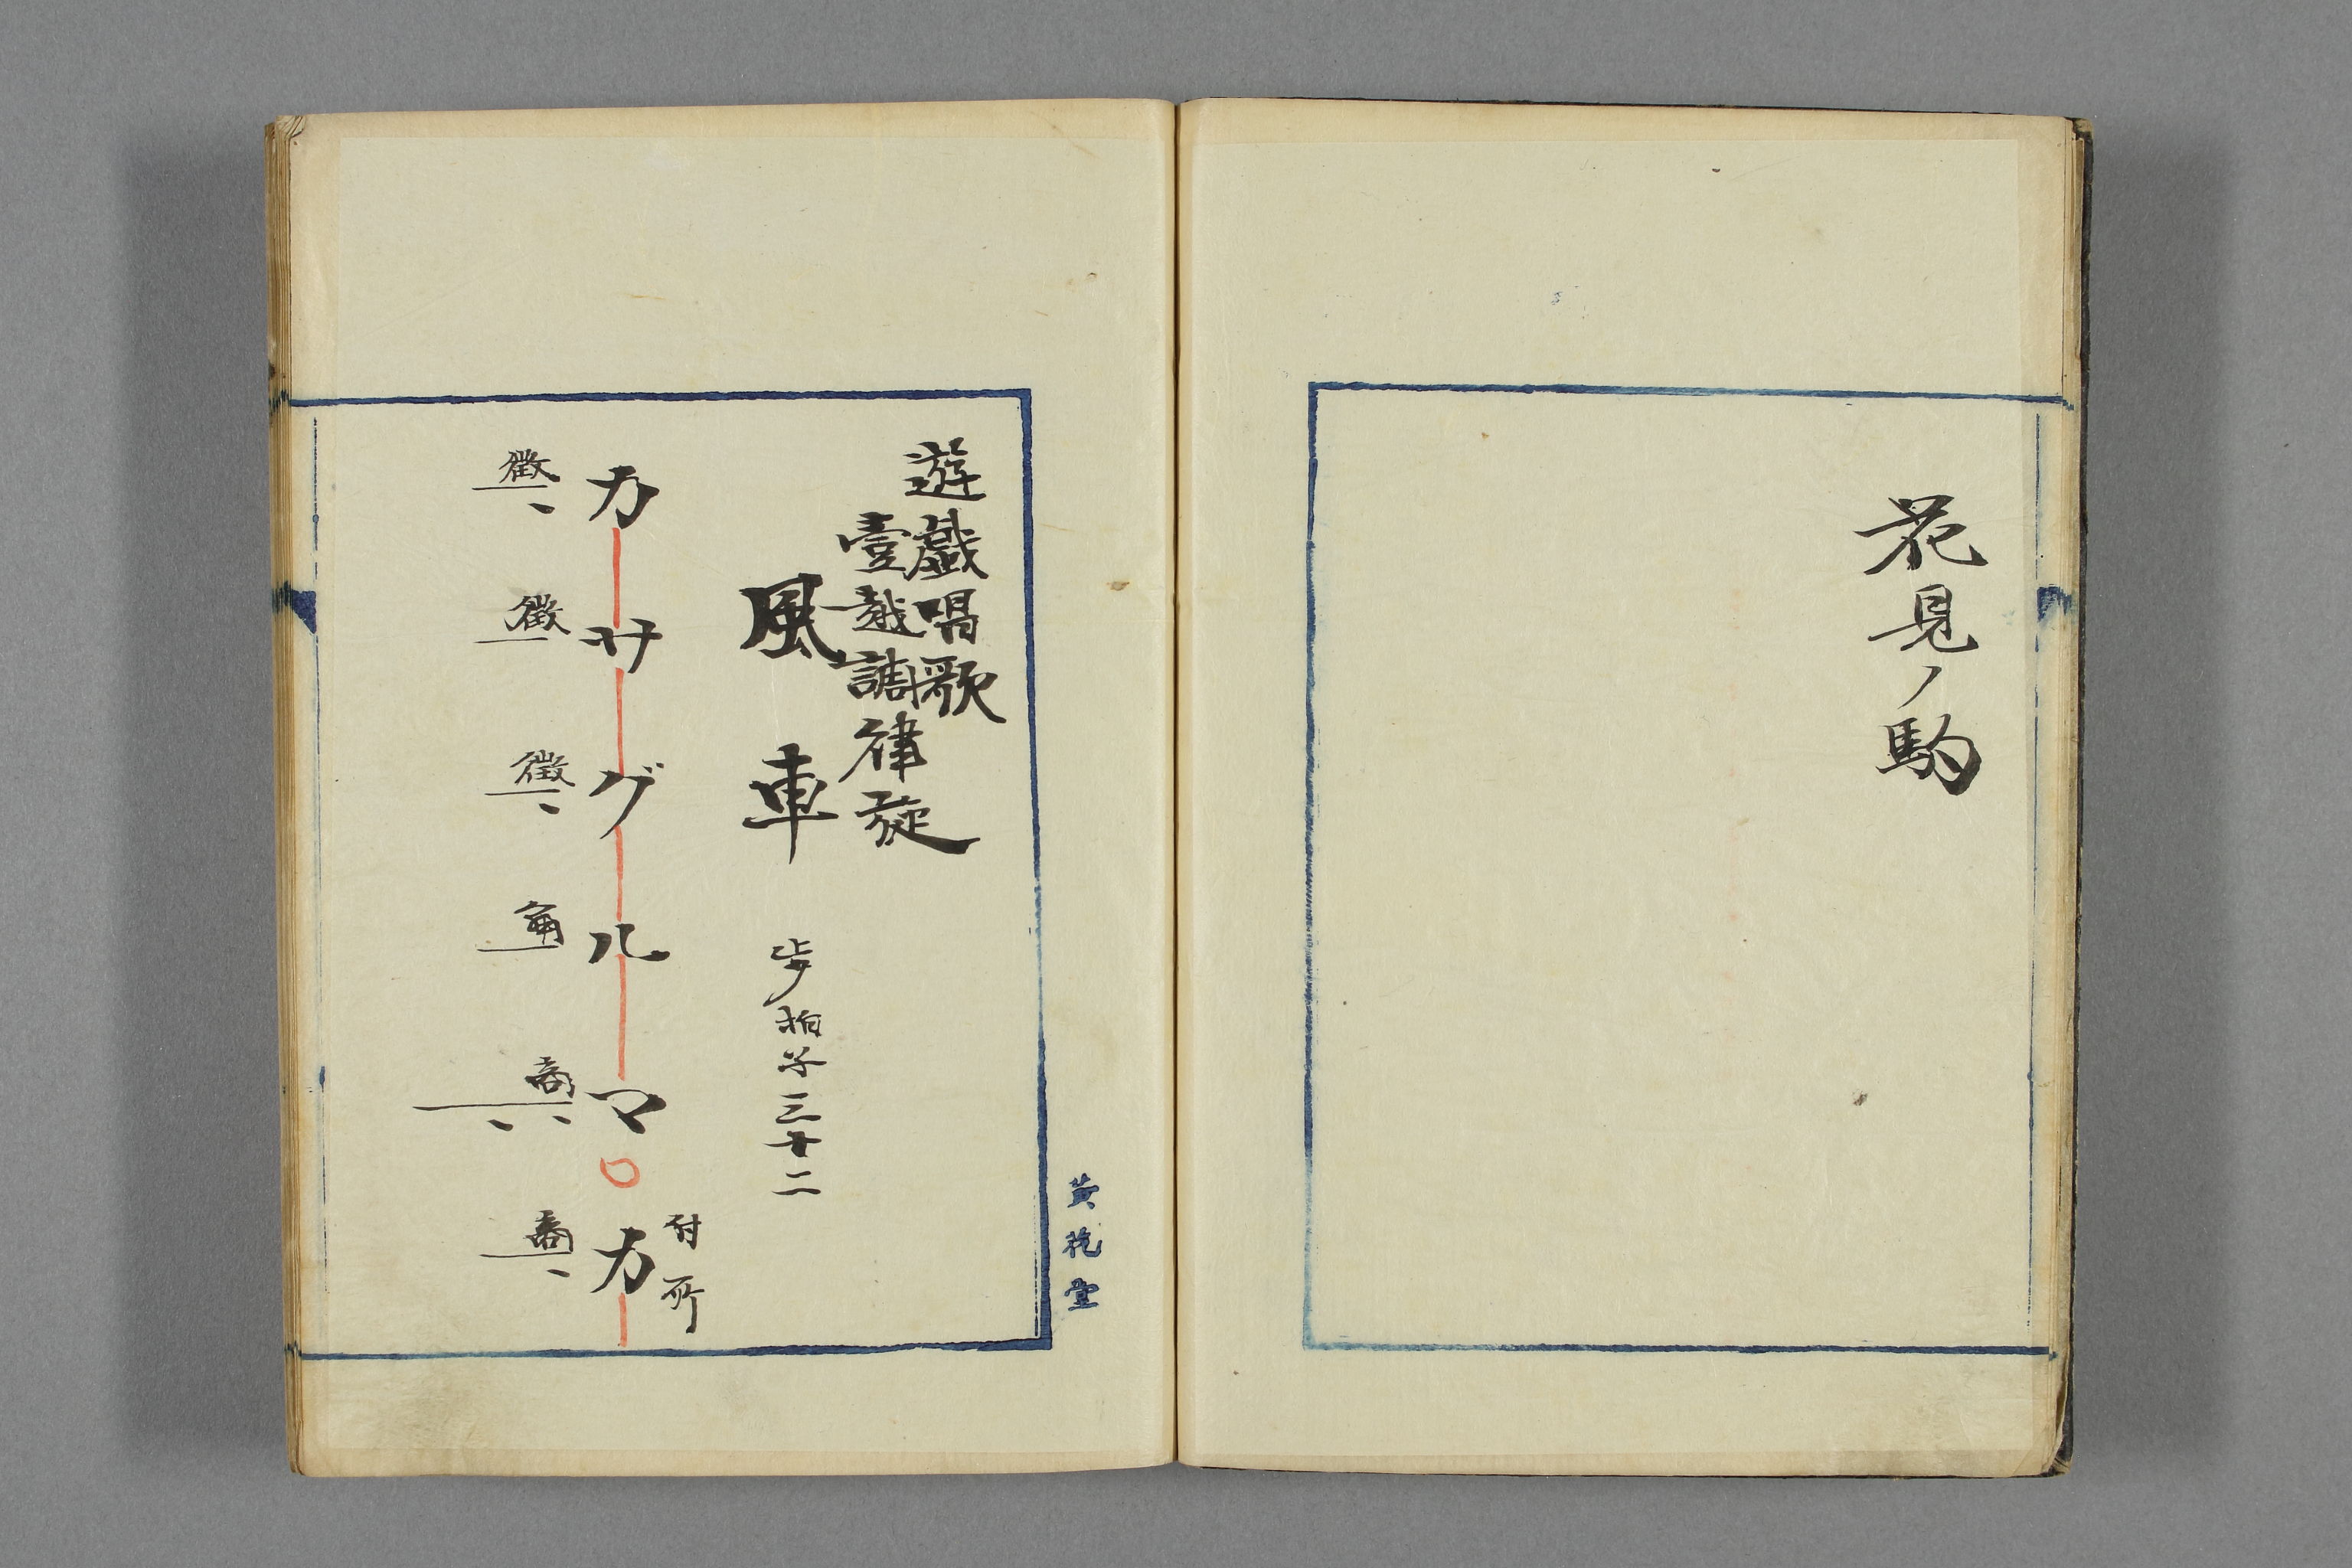 花見ノ駒
遊戯唱歌
壹越調律旋
風車 歩拍子三十二
付所
カサグルマカ
徵徵徵角商商